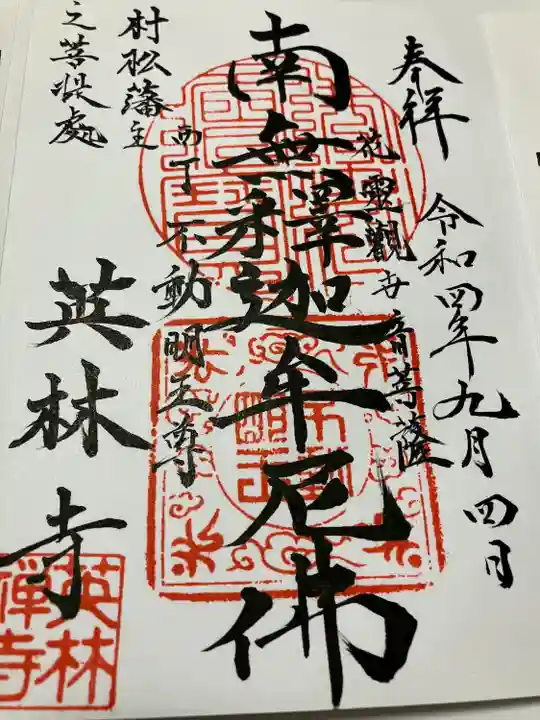 奉祥
令和四年九月四日
花靈觀世音菩薩
南無釋迦牟尼佛
不動明王尊
村松藩主
之菩提處
英林寺
英林
禅寺